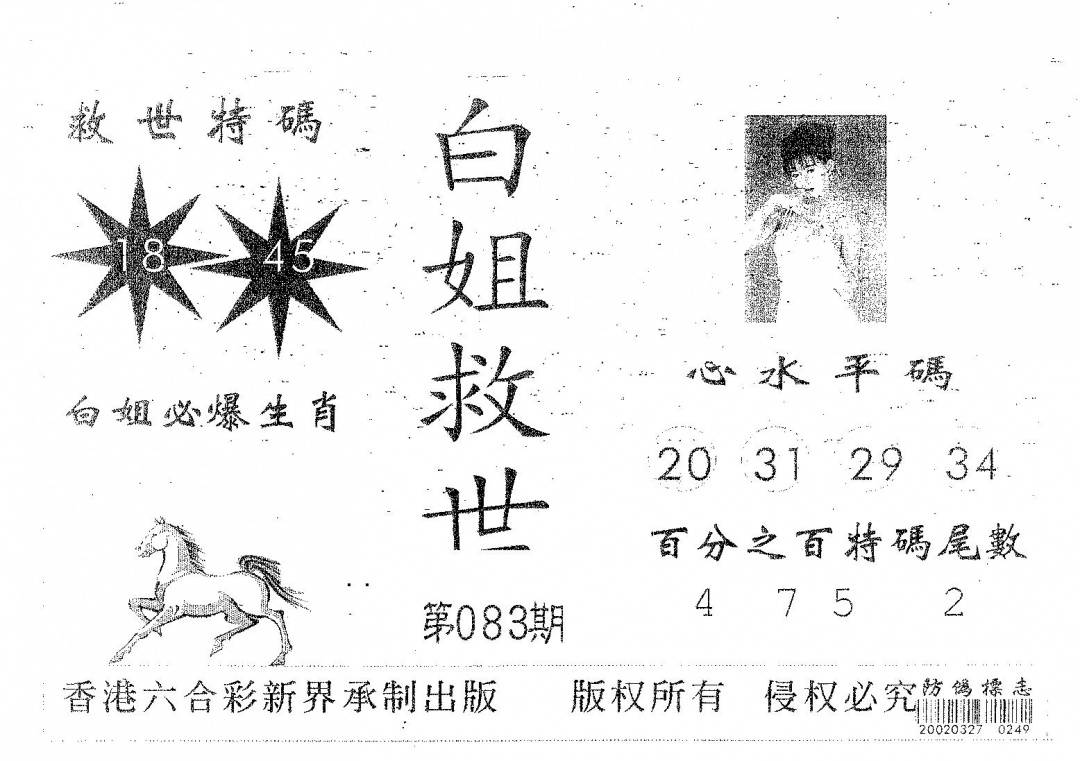 救世特碼
18 45
白姐必爆生肖
白姐救世
第083期
心水平碼
20 31 29 34
百分之百特碼尾數
4 7 5 2
香港六合彩新界承制出版 版权所有 侵权必究
防偽標志
20020327 0249